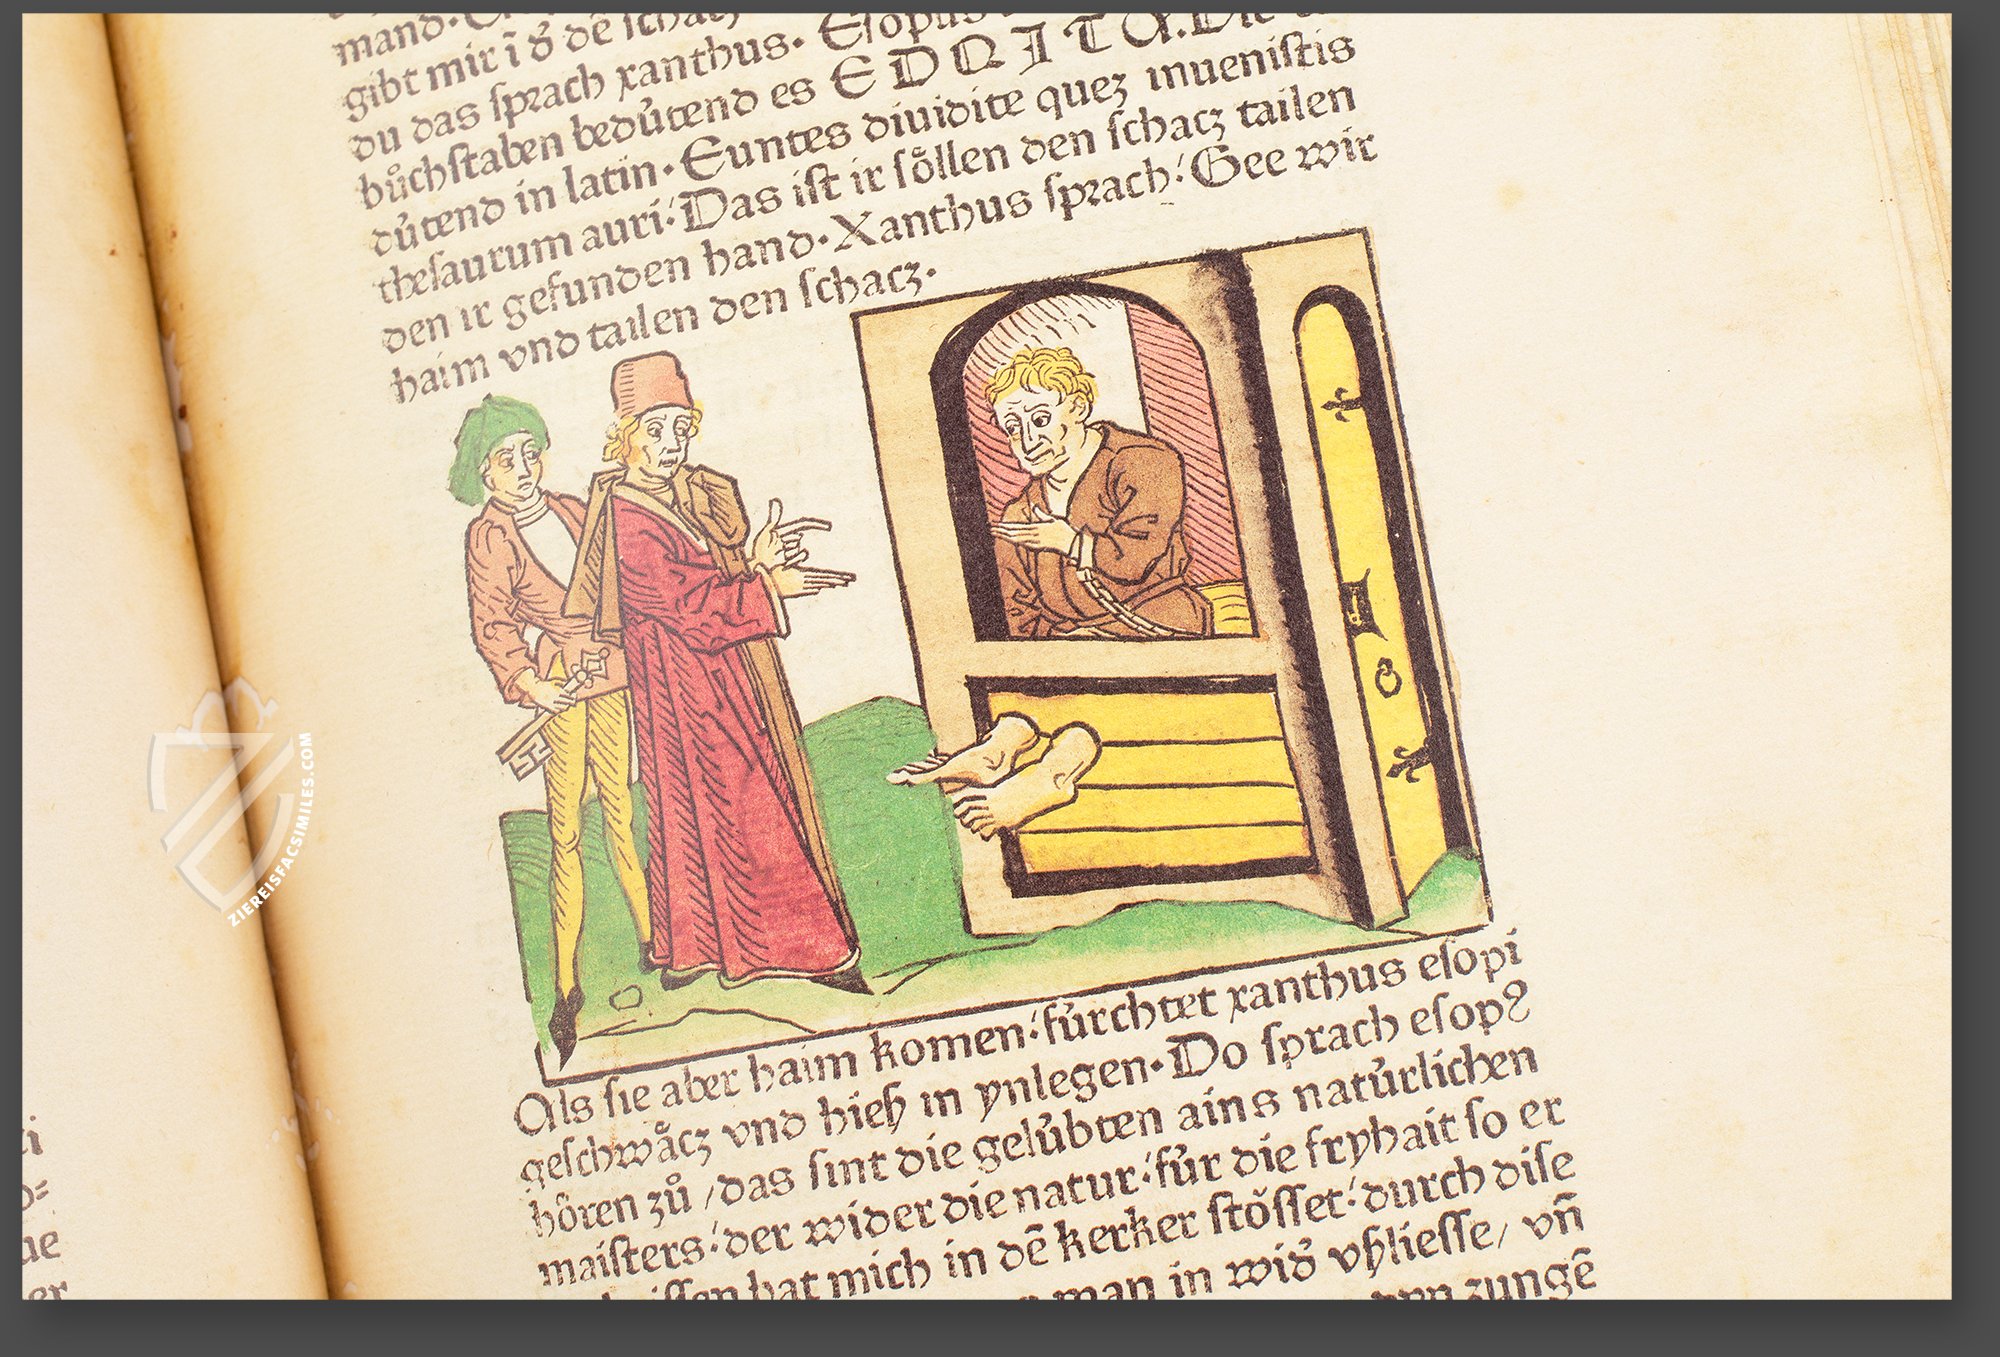 mand·
gibt mir ī ḡ dē ſchacz xanthus· Eſopus
du das ſprach xanthus· Eſopus
bůchſtaben bedütend es E D Q I T A. Die
dütend in latin· Euntes diuidite quez inueniſtis
theſaurum auri· Das iſt ir ſöllen den ſchacz tailen
den ir gefunden hand· Xanthus ſprach· Gee wir
haim vnd tailen den ſchacz·
Als ſie aber haim komen· fürchtet xanthus eſopi
geſchwäcz vnd hieß in ynlegen· Do ſprach eſop?
hören zů / das ſint die gelübten ains natürlichen
maiſters· der wider die natur· für die fryhait ſo er
hat mich in dē kerker ſtöſſet· durch diſe
man in wid vßlieſſe / vn̄
zungē
ZIEREISFACSIMILES.COM